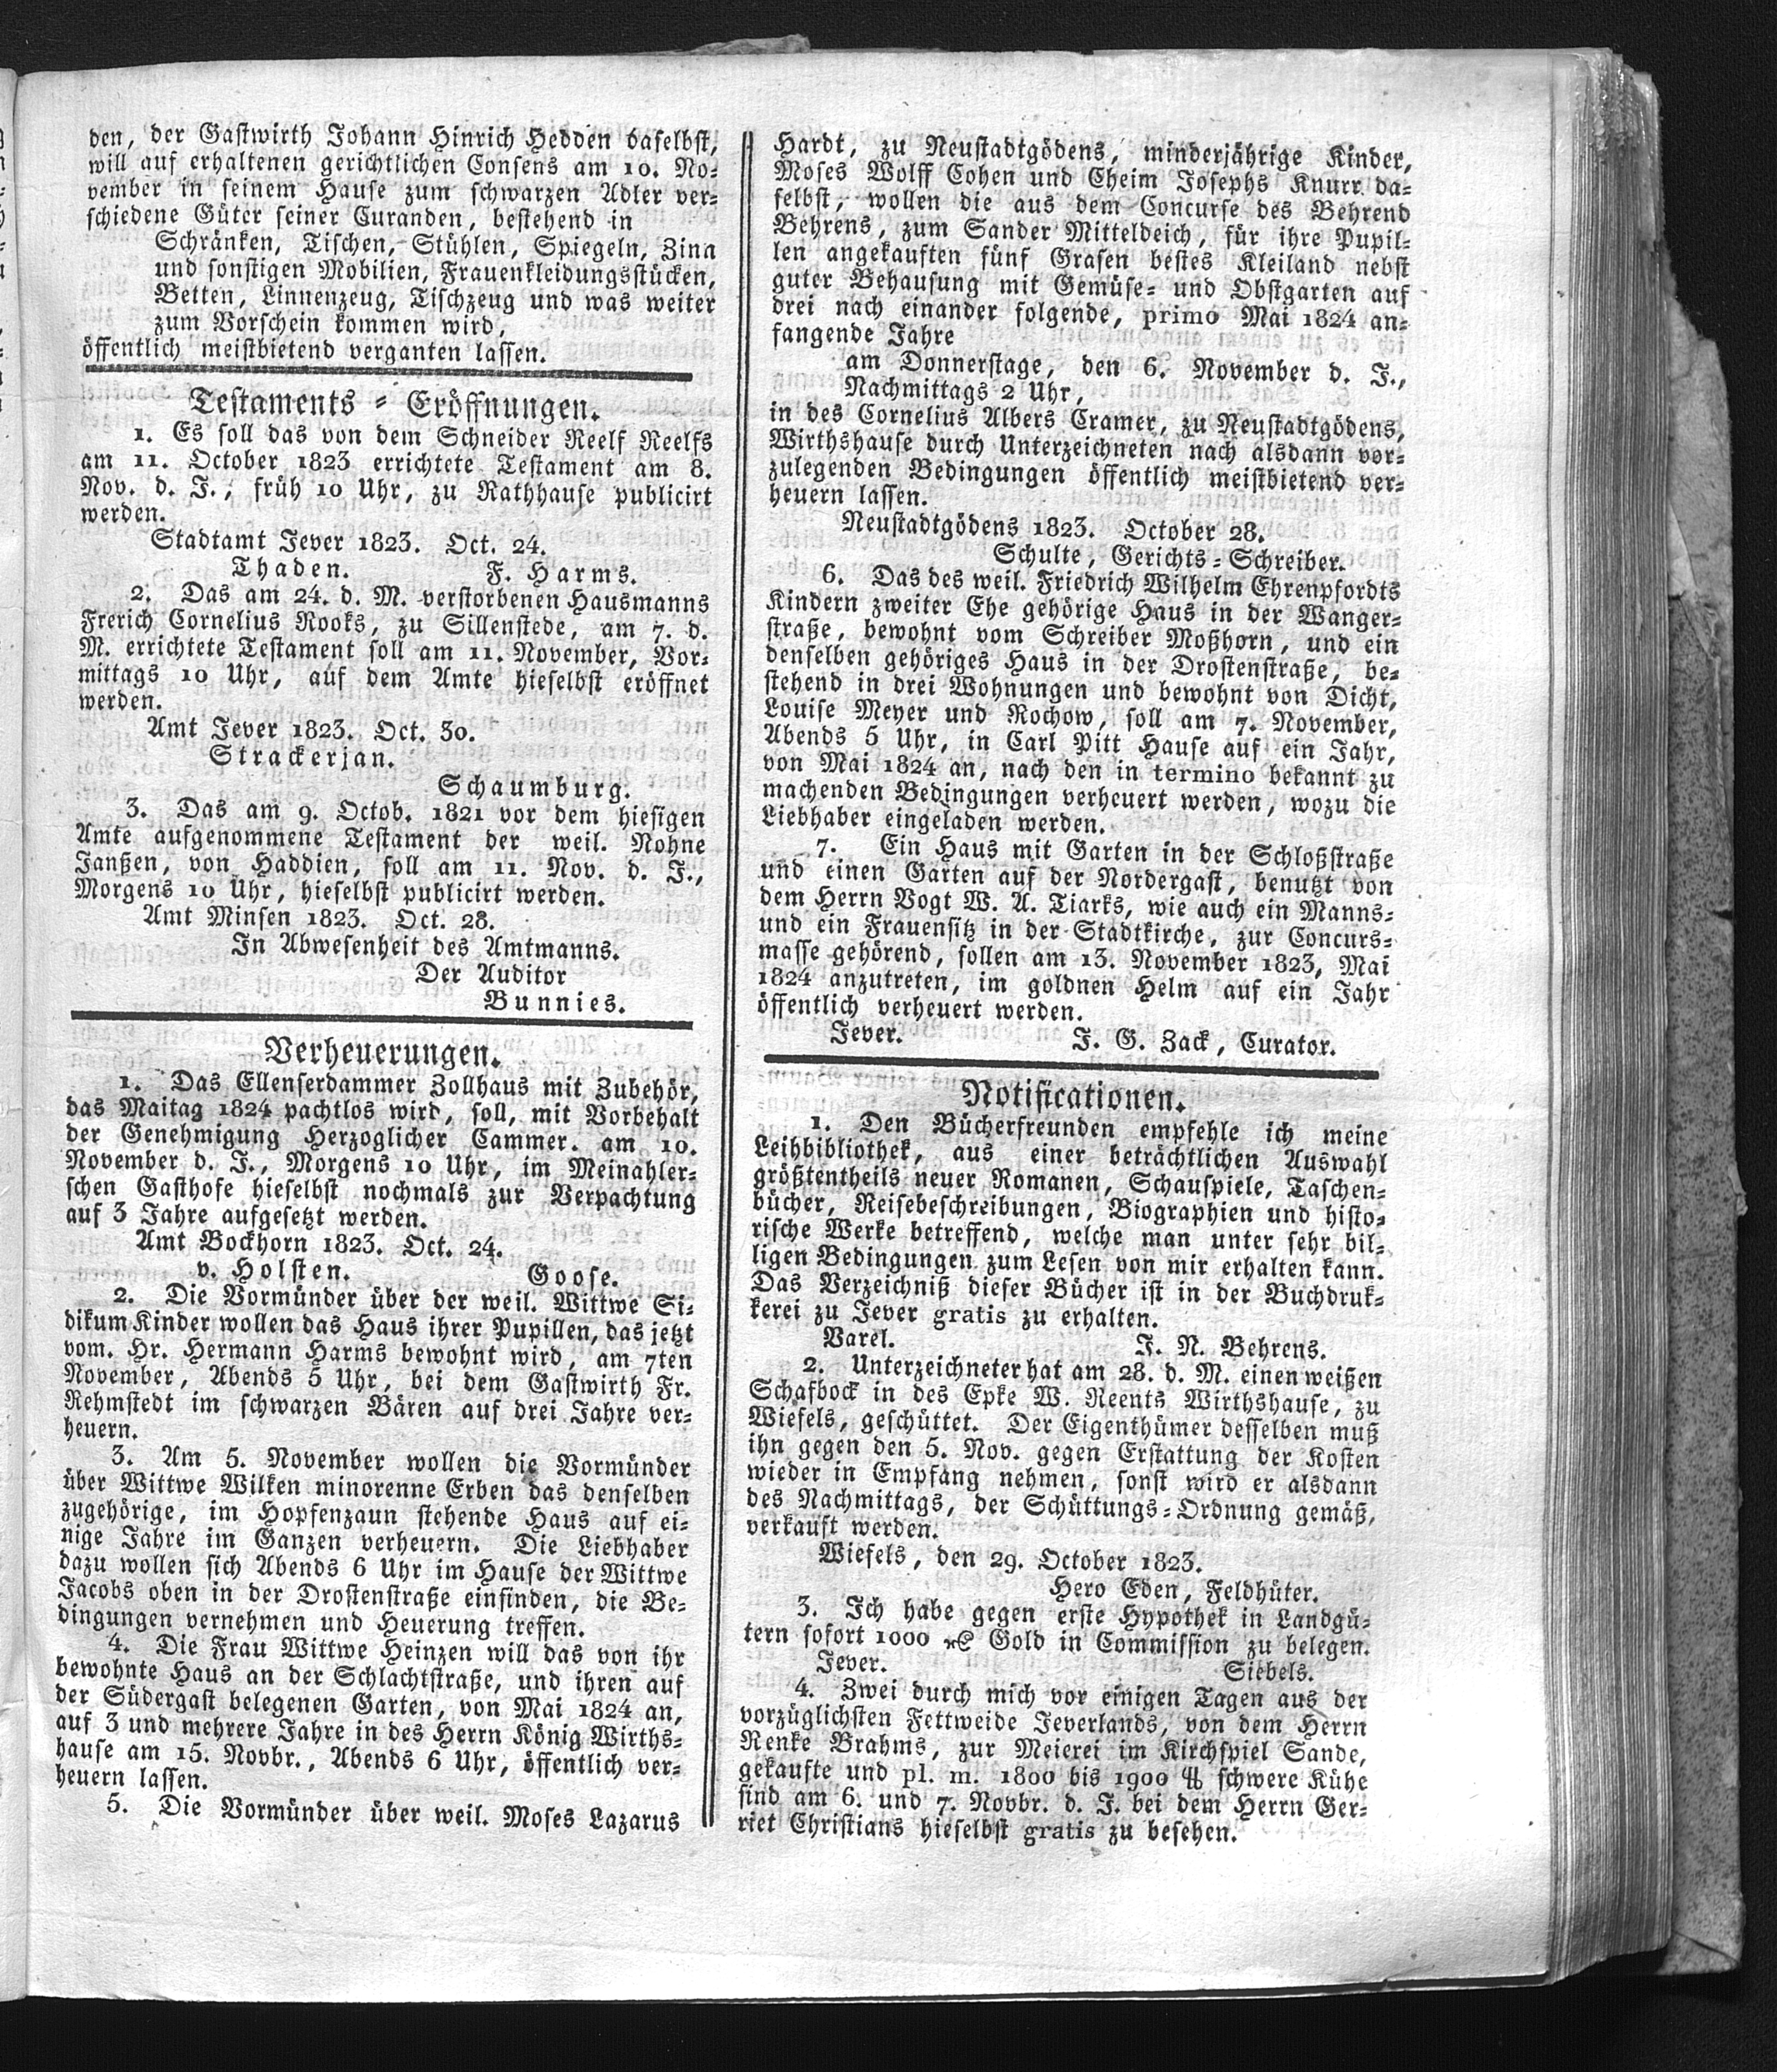 den, der Gastwirth Johann Hinrich Hedden daselbst,
will auf erhaltenen gerichtlichen Consens am 10. No-
vember in seinem Hause zum schwarzen Adler ver-
schiedene Güter seiner Curanden, bestehend in
Schränken, Tischen, Stühlen, Spiegeln, Zinn
und sonstigen Mobilien, Frauenkleidungsstücken,
Betten, Linnenzeug, Tischzeug und was weiter
zum Vorschein kommen wird,
öffentlich meistbietend verganten lassen.
Testaments - Eröffnungen.
1. Es soll das von dem Schneider Reelf Reelfs
am 11. October 1823 errichtete Testament am 8.
Nov. d. J., früh 10 Uhr, zu Rathhause publicirt
werden.
Stadtamt Jever 1823. Oct. 24.
Thaden. F. Harms.
2. Das am 24. d. M. verstorbenen Hausmanns
Frerich Cornelius Rooks, zu Sillenstede, am 7. d.
M. errichtete Testament soll am 11. November, Vor-
mittags 10 Uhr, auf dem Amte hieselbst eröffnet
werden.
Amt Jever 1823. Oct. 30.
Strackerjan.
Schaumburg.
3. Das am 9. Octob. 1821 vor dem hiesigen
Amte aufgenommene Testament der weil. Nohne
Janßen, von Haddien, soll am 11. Nov. d. J.,
Morgens 10 Uhr, hieselbst publicirt werden.
Amt Minsen 1823. Oct. 28.
In Abwesenheit des Amtmanns.
Der Auditor
Bunnies.
Verheuerungen.
1. Das Ellenserdammer Zollhaus mit Zubehör,
das Maitag 1824 pachtlos wird, soll, mit Vorbehalt
der Genehmigung Herzoglicher Cammer. am 10.
November d. J., Morgens 10 Uhr, im Meinahler-
schen Gasthofe hieselbst nochmals zur Verpachtung
auf 3 Jahre aufgesetzt werden.
Amt Bockhorn 1823. Oct. 24.
v. Holsten. Goose.
2. Die Vormünder über der weil. Wittwe Si-
dikum Kinder wollen das Haus ihrer Pupillen, das jetzt
vom. Hr. Hermann Harms bewohnt wird, am 7ten
November, Abends 5 Uhr, bei dem Gastwirth Fr.
Rehmstedt im schwarzen Bären auf drei Jahre ver-
heuern.
3. Am 5. November wollen die Vormünder
über Wittwe Wilken minorenne Erben das denselben
zugehörige, im Hopfenzaun stehende Haus auf ei-
nige Jahre im Ganzen verheuern. Die Liebhaber
dazu wollen sich Abends 6 Uhr im Hause der Wittwe
Jacobs oben in der Drostenstraße einfinden, die Be-
dingungen vernehmen und Heuerung treffen.
4. Die Frau Wittwe Heinzen will das von ihr
bewohnte Haus an der Schlachtstraße, und ihren auf
der Südergast belegenen Garten, von Mai 1824 an,
auf 3 und mehrere Jahre in des Herrn König Wirths-
hause am 15. Novbr., Abends 6 Uhr, öffentlich ver-
heuern lassen.
5. Die Vormünder über weil. Moses Lazarus
Hardt, zu Neustadtgödens, minderjährige Kinder,
Moses Wolff Cohen und Cheim Josephs Knurr da-
selbst, wollen die aus dem Concurse des Behrend
Behrens, zum Sander Mitteldeich, für ihre Pupil-
len angekauften fünf Grasen bestes Kleiland nebst
guter Behausung mit Gemüse- und Obstgarten auf
drei nach einander folgende, primo Mai 1824 an-
fangende Jahre
am Donnerstage, den 6. November d. J.,
Nachmittags 2 Uhr,
in des Cornelius Albers Cramer, zu Neustadtgödens,
Wirthshause durch Unterzeichneten nach alsdann vor-
zulegenden Bedingungen öffentlich meistbietend ver-
heuern lassen.
Neustadtgödens 1823. October 28.
Schulte, Gerichts-Schreiber.
6. Das des weil. Friedrich Wilhelm Ehrenpfordts
Kindern zweiter Ehe gehörige Haus in der Wanger-
straße, bewohnt vom Schreiber Moßhorn, und ein
denselben gehöriges Haus in der Drostenstraße, be-
stehend in drei Wohnungen und bewohnt von Dicht,
Louise Meyer und Rochow, soll am 7. November,
Abends 5 Uhr, in Carl Pitt Hause auf ein Jahr,
von Mai 1824 an, nach den in termino bekannt zu
machenden Bedingungen verheuert werden, wozu die
Liebhaber eingeladen werden.
7. Ein Haus mit Garten in der Schloßstraße
und einen Garten auf der Nordergast, benutzt von
dem Herrn Vogt W. A. Tiarks, wie auch ein Manns-
und ein Frauensitz in der Stadtkirche, zur Concurs-
masse gehörend, sollen am 13. November 1823, Mai
1824 anzutreten, im goldnen Helm auf ein Jahr
öffentlich verheuert werden.
Jever. J. G. Zack, Curator.
Notificationen.
1. Den Bücherfreunden empfehle ich meine
Leihbibliothek, aus einer beträchtlichen Auswahl
größtentheils neuer Romanen, Schauspiele, Taschen-
bücher, Reisebeschreibungen, Biographien und histo-
rische Werke betreffend, welche man unter sehr bil-
ligen Bedingungen zum Lesen von mir erhalten kann.
Das Verzeichniß dieser Bücher ist in der Buchdruk-
kerei zu Jever gratis zu erhalten.
Varel. J. N. Behrens.
2. Unterzeichneter hat am 28. d. M. einen weißen
Schafbock in des Epke W. Reents Wirthshause, zu
Wiefels, geschüttet. Der Eigenthümer desselben muß
ihn gegen den 5. Nov. gegen Erstattung der Kosten
wieder in Empfang nehmen, sonst wird er alsdann
des Nachmittags, der Schüttungs-Ordnung gemäß,
verkauft werden.
Wiefels, den 29. October 1823.
Hero Eden, Feldhüter.
3. Ich habe gegen erste Hypothek in Landgü-
tern sofort 1000 rC Gold in Commission zu belegen.
Jever. Siebels.
4. Zwei durch mich vor einigen Tagen aus der
vorzüglichsten Fettweide Jeverlands, von dem Herrn
Renke Brahms, zur Meierei im Kirchspiel Sande,
gekaufte und pl. m. 1800 bis 1900 ℔ schwere Kühe
sind am 6. und 7. Novbr. d. J. bei dem Herrn Ger-
riet Christians hieselbst gratis zu besehen.